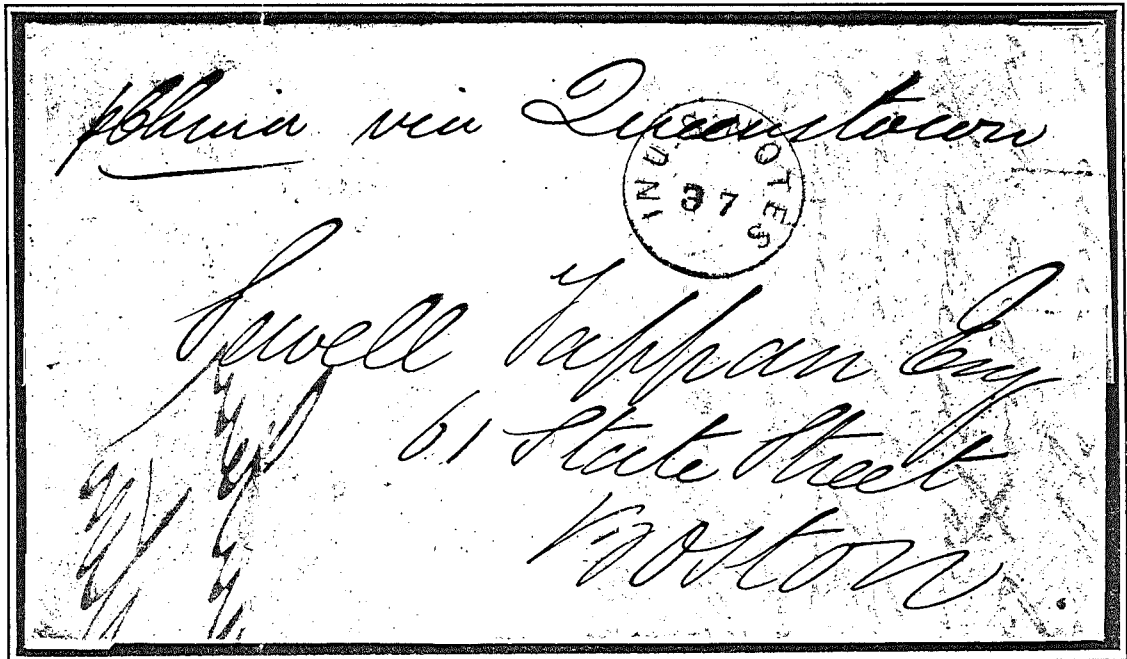 via Queenstown
IN U.S. NOTES
37
Sewell Tappan Esq
61 State Street
Boston